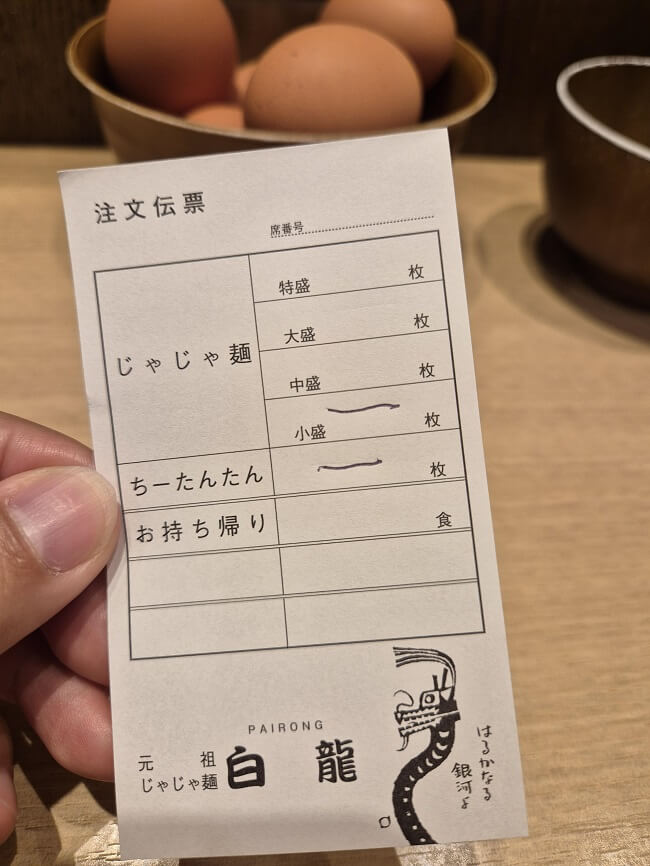 注文伝票
席番号
じゃじゃ麺
特盛 枚
大盛 枚
中盛 枚
小盛 一 枚
ちーたんたん 一 枚
お持ち帰り 食
PAIRONG
元祖
じゃじゃ麺
白龍
はるかなる
銀河よ